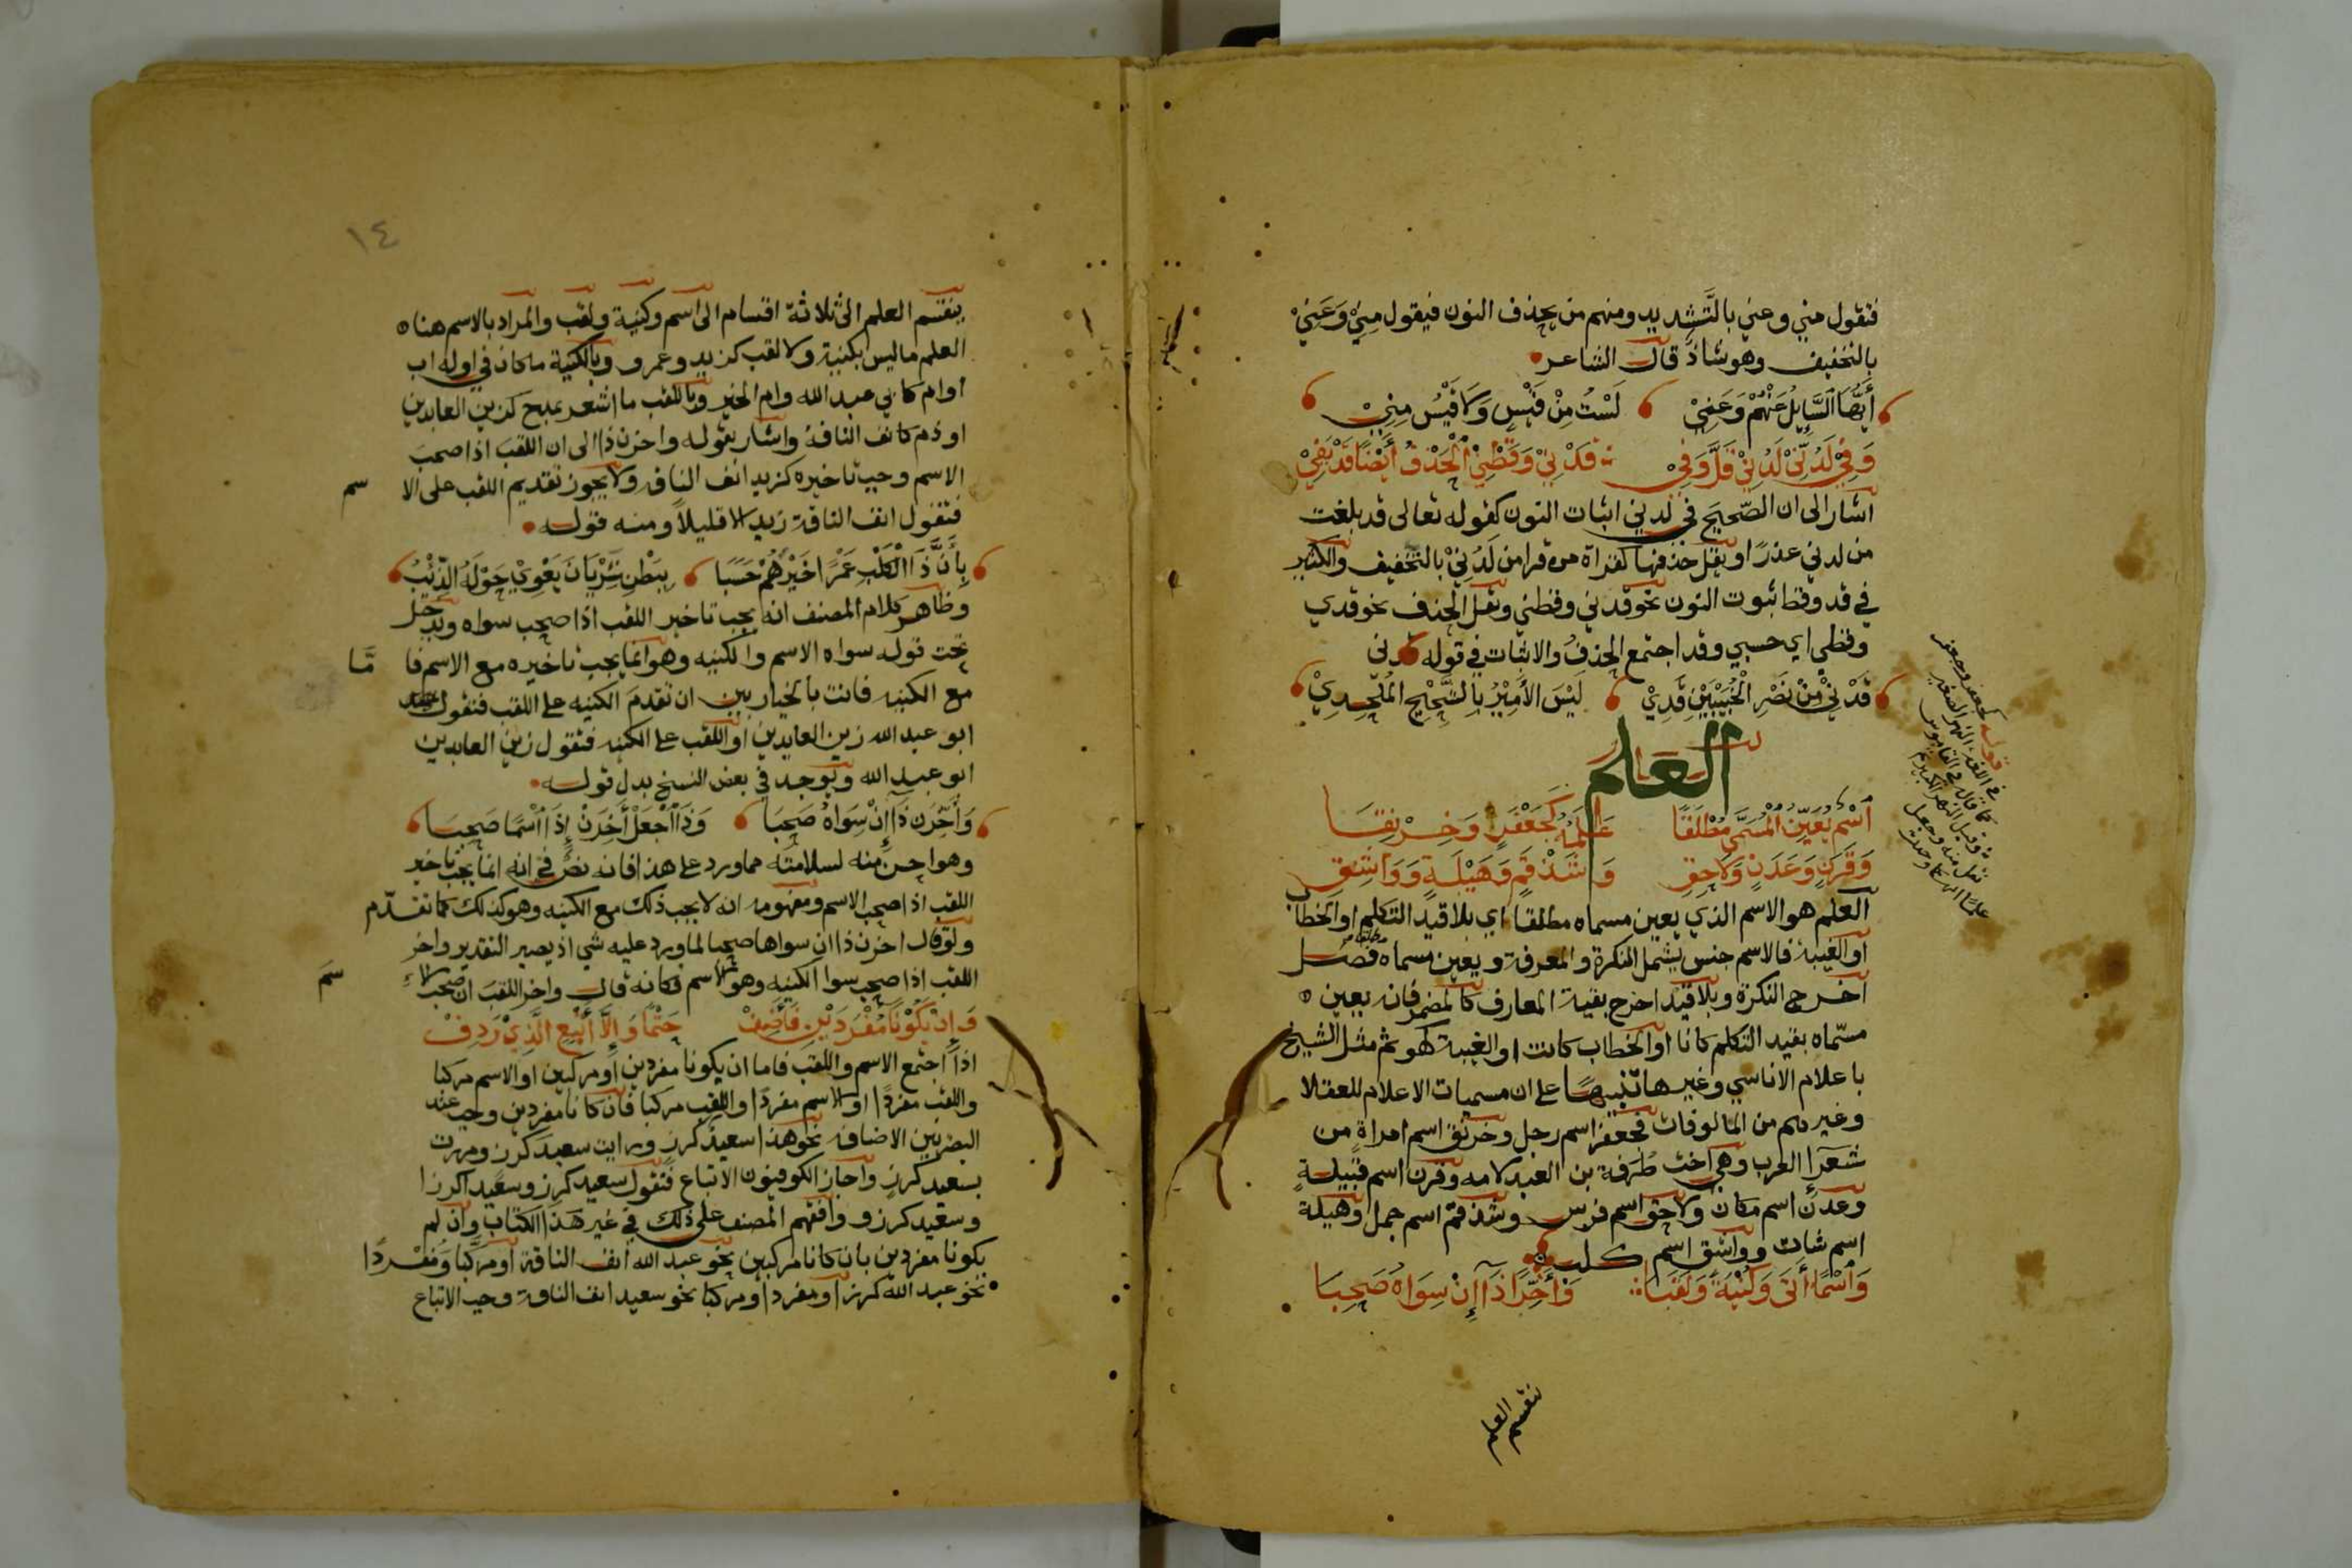 فتقول منّي وعني بالتَّشديد ومنهم من يحذف النون فيقول مِنِيْ وَعَنِيْ
بالتخفيف وهو شاذّ قال الشاعر
أَيُّهَا السَّايِلُ عَنْهُمْ وَعَنِيْ لَسْتُ مِنْ قَيْسٍ وَلَا قَيْسُ مِنِيْ
وَفِيْ لَدُنِّيْ لَدُنِيْ قَلَّ وَفِيْ قَدْنِيْ وَقَطْنِيْ اَلْحَذْفُ أَيْضًا قَدْ يَفِيْ
اشار الى ان الصّحيح في لدني اثبات النون كقوله تعالى قد بلغت
من لدني عذرًا ويقل حذفها كقراة من قرا من لَدُنِيْ بالتخفيف والكثير
في قد وقط ثبوت النون نحو قدني وقطني ويقل الحذف نحو قدي
وقطي اي حسبي وقد اجتمع الحذفُ والاثبات في قوله قدني
قَدْنِيْ مِنْ نَصْرِ الْخُبَيْبَيْنِ قَدِيْ لَيْسَ الأَمِيْرُ بِالشَّحِيْحِ المُلْحِدِيْ
العلم
اَسْمٌ يُعَيِّنُ الْمُسَمَّى مُطْلَقًا عَلَمُهُ كَجَعْفَرٍ وَخِرْنِقَا
وَقَرَنٍ وَعَدَنٍ وَلَاحِقٍ وَشَذْقَمٍ وَهَيْلَةٍ وَوَاشِقِ
العلم هو الاسم الذي يعين مسماه مطلقًا اي بلا قيد التكلم او الخطاب
او الغيبة فالاسم جنس يشمل النكرة والمعرفة ويعين مسماه فصل
اخرج النكرة وبلا قيد اخرج بقية المعارف كالمضمر فانه يعين
مسمّاه بقيد التكلم كانا او الخطاب كانت او الغيبة كهو ثم مثل الشيخ
باعلام الاناسي وغيرها تنبيهًا على ان مسميات الاعلام للعقلا
وغيرهم من المالوفات فجعفر اسم رجل وخرنق اسم امراةٍ من
شعرآ العرب وهي اخت طرفة بن العبد لامه وقرن اسم قبيلةٍ
وعدن اسم مكان ولاحق اسم فرس وشذقم اسم جمل وهيلة
اسم شات وواشق اسم كلب
وَاَسْمًا أَتَى وَكُنْيَةً وَلَقَبَا وَأَخِّرًا ذَا إِنْ سِوَاهُ صَحِبَا
ينقسم العلم
قوله كجعفر وجعفر
في اللغة النهر الصغير
كما قال في القاموس
وقيل النهر الكبير ثم
نقل منه وجعل
١٤
ينقسم العلم الى ثلاثة اقسام الى اسم وكنية ولقب والمراد بالاسم هنا
العلم ما ليس بكنية ولا لقب كزيد وعمرو وبالكنية ما كان في اوله اب
او ام كابي عبد الله وام الخير وباللقب ما اشعر بمدح كزين العابدين
او ذم كانف الناقة واشار بقوله واخرن ذا الى ان اللقب اذا صحبَ
الاسم وجب تاخيره كزيد انف الناقة ولا يجوز تقديم اللقب على الا سم
فتقول انف الناقة زيد الا قليلاً ومنه قوله
بِأَنَّ ذَا الْكَلْبِ عَمْرًا خَيْرَهُمْ حَسَبًا بِبَطْنِ شَرْيَانَ يَعْوِيْ حَوْلَهُ الذِّئْبُ
وظاهر كلام المصنف انه يجب تاخير اللقب اذا صحب سواه ويدخل
تحت قوله سواه الاسم والكنيه وهو انما يجب تاخيره مع الاسم فا مّا
مع الكنيه فانت بالخيار بين ان تقدمَ الكنيه على اللقب فتقول
ابو عبد الله زين العابدين او اللقب على الكنيه فتقول زين العابدين
ابو عبد الله ويوجد في بعض النسخ بدل قوله
وَأَخِّرَنْ ذَا إِنْ سِوَاهُ صَحِبَا وَذَا اَجْعَلْ أَخِرَنْ إِذَا اَسْمًا صَحِبَا
وهو احسن منه لسلامته مما ورد على هذا فانه نصٌّ في انه انما يجب تاخير
اللقب اذا صحب الاسم ومفهومه انه لا يجب ذلك مع الكنيه وهو كذلك كما تقدّم
ولو قال اخرن ذا ان سواها صحبا لما ورد عليه شي اذ يصير التقدير واخر
اللقب اذا صحب سوا الكنيه وهو الاسم فكانه قال واخر اللقبَ ان صحب الا سمَ
وَإِنْ يَكُوْنَا مُفْرَدَيْنِ فَأَضِفْ حَتْمًا وَإِلَّا أَتْبِعِ الَّذِيْ رَدِفْ
اذا اجتمع الاسم واللقب فاما ان يكونا مفردين او مركبين او الاسم مركبا
واللقب مفردًا او الاسم مفردًا واللقب مركبا فان كانا مفردين وجب عند
البصريين الاضافه نحو هذا سعيدُ كرزٍ ورايت سعيدَ كرز ومررت
بسعيد كرزٍ واجاز الكوفيون الاتباع فتقول سعيد كرز وسعيدا كرزا
وسعيد كرز و وافقهم المصنف على ذلك في غير هذا الكتاب وان لم
يكونا مفردين بان كانا مركبين نحو عبد الله انف الناقة او مركبا ومفردًا
نحو عبد الله كرز او مفردا ومركبا نحو سعيد انف الناقة وجب الاتباع